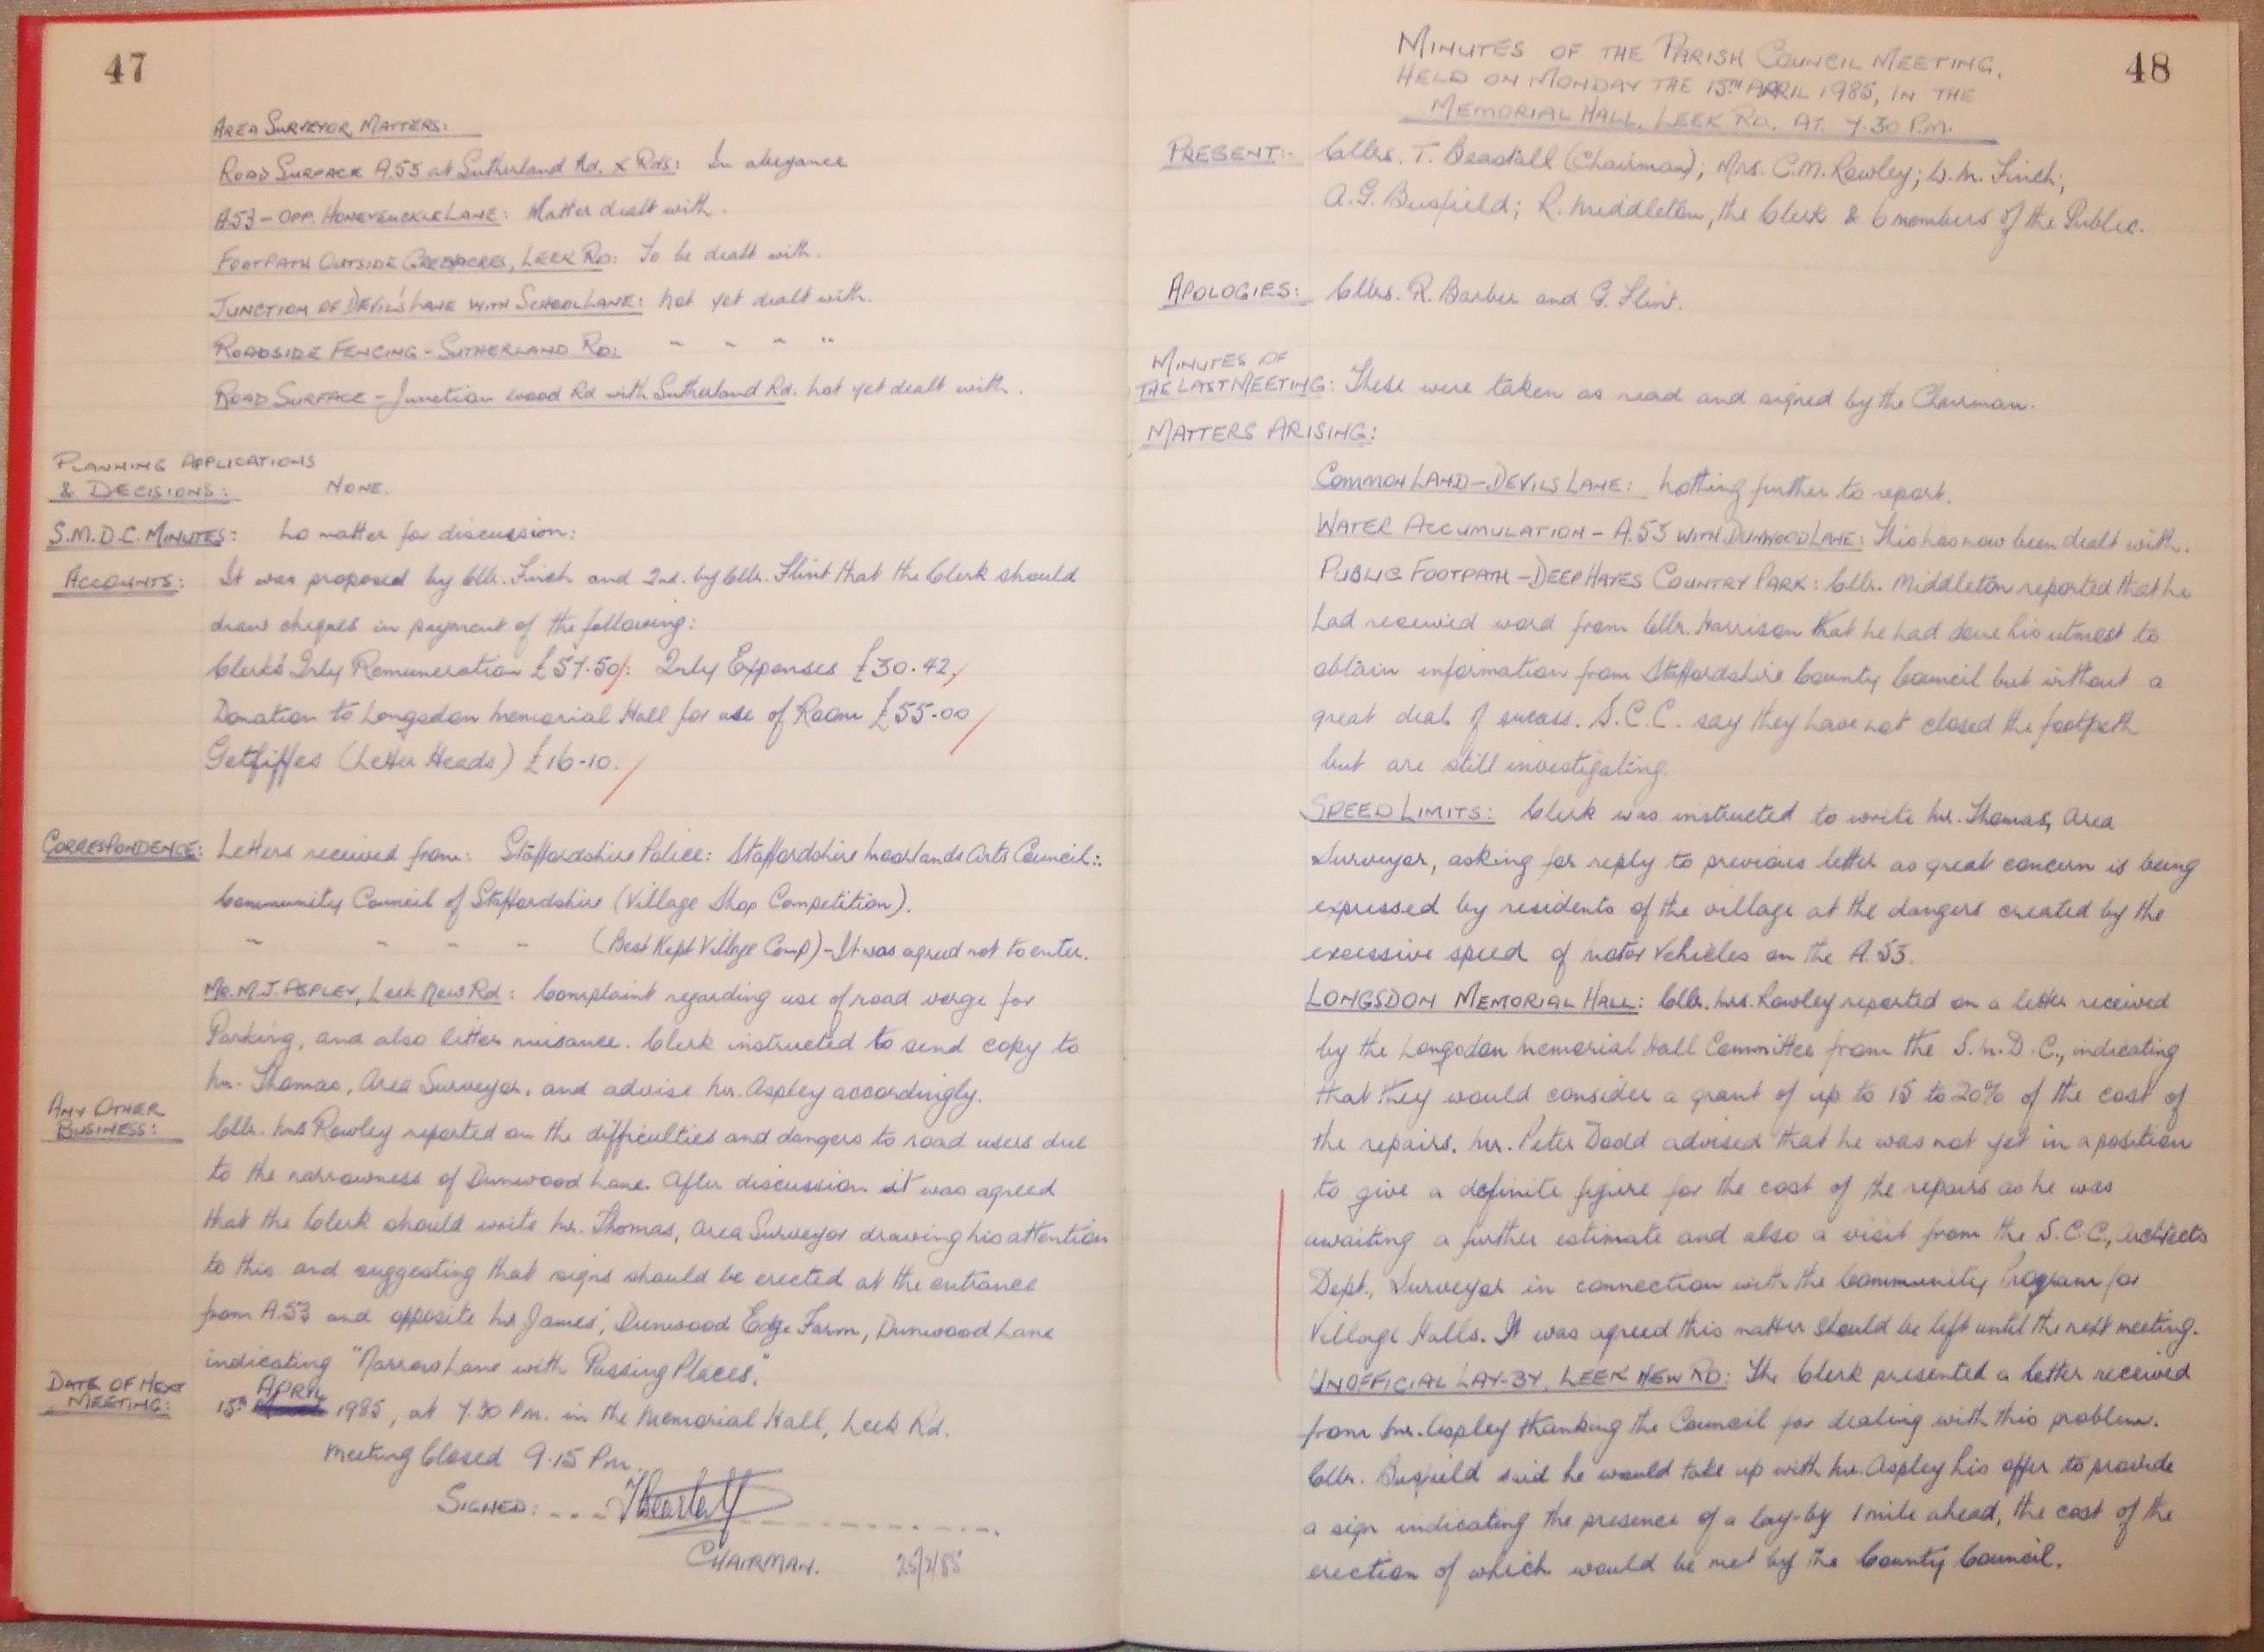 47
AREA SURVEYOR MATTERS:
ROAD SURFACE A.53 at Sutherland Rd. X Rds: In abeyance
A53 - OPP. HONEYSUCKLE LANE: Matter dealt with.
FOOTPATH OUTSIDE GREENACRES, LEEK RD: To be dealt with.
JUNCTION OF DEVIL'S LANE WITH SCHOOL LANE: Not yet dealt with.
ROADSIDE FENCING - SUTHERLAND RD: " " " "
ROAD SURFACE - Junction Wood Rd with Sutherland Rd. Not yet dealt with.
PLANNING APPLICATIONS
& DECISIONS: NONE.
S.M.D.C. MINUTES: No matter for discussion:
ACCOUNTS: It was proposed by Cllr. Finch and 2nd. by Cllr. Flint that the Clerk should
draw cheques in payment of the following:
Clerk's Qrly Remuneration £57.50/: Qrly Expenses £30.42/
Donation to Longsdon Memorial Hall for use of Room £55.00/
(Letter Heads) £16-10./
CORRESPONDENCE: Letters received from: Staffordshire Police: Staffordshire Moorlands Arts Council:
Community Council of Staffordshire (Village Shop Competition).
" " " " (Best Kept Village Comp) - It was agreed not to enter.
MR. M.J. ASPLEY, Leek New Rd: Complaint regarding use of road verge for
Parking, and also litter nuisance. Clerk instructed to send copy to
Mr. Thomas, Area Surveyor, and advise Mr. Aspley accordingly.
ANY OTHER
BUSINESS: Cllr. Mrs Rowley reported on the difficulties and dangers to road users due
to the narrowness of Dunwood Lane. After discussion it was agreed
that the Clerk should write Mr. Thomas, Area Surveyor drawing his attention
to this and suggesting that signs should be erected at the entrance
from A.53 and opposite Mr James', Dunwood Edge Farm, Dunwood Lane
indicating "Narrow Lane with Passing Places".
DATE OF NEXT
MEETING: 15th APRIL 1985, at 7.30 P.m. in the Memorial Hall, Leek Rd.
Meeting Closed 9.15 P.m.
SIGNED: T Beastall
CHAIRMAN. 25/2/85
48
MINUTES OF THE PARISH COUNCIL MEETING,
HELD ON MONDAY THE 15TH APRIL 1985, IN THE
MEMORIAL HALL, LEEK RD. AT 7.30 P.M.
PRESENT:- Cllrs. T. Beastall (Chairman); Mrs. C.M. Rowley; W.M. Finch;
A.G. Busfield; R. Middleton, the Clerk & 6 members of the Public.
APOLOGIES: Cllrs. R. Barber and G. Flint.
MINUTES OF
THE LAST MEETING: These were taken as read and signed by the Chairman.
MATTERS ARISING:
COMMON LAND - DEVILS LANE: Nothing further to report.
WATER ACCUMULATION - A.53 WITH DUNWOOD LANE: This has now been dealt with.
PUBLIC FOOTPATH - DEEP HAYES COUNTRY PARK: Cllr. Middleton reported that he
had received word from Cllr. Harrison that he had done his utmost to
obtain information from Staffordshire County Council but without a
great deal of sucess. S.C.C. say they have not closed the footpath
but are still investigating.
SPEED LIMITS: Clerk was instructed to write Mr. Thomas, Area
Surveyor, asking for reply to previous letter as great concern is being
expressed by residents of the village at the dangers created by the
excessive speed of motor vehicles on the A.53.
LONGSDON MEMORIAL HALL: Cllr. Mrs. Rowley reported on a letter received
by the Longsdon Memorial Hall Committee from the S.M.D.C., indicating
that they would consider a grant of up to 15 to 20% of the cost of
the repairs. Mr. Peter Dodd advised that he was not yet in a position
to give a definite figure for the cost of the repairs as he was
awaiting a further estimate and also a visit from the S.C.C., Architects
Dept., Surveyor in connection with the Community Program for
Village Halls. It was agreed this matter should be left until the next meeting.
UNOFFICIAL LAY-BY, LEEK NEW RD: The Clerk presented a letter received
from Mr. Aspley thanking the Council for dealing with this problem.
Cllr. Busfield said he would take up with Mr. Aspley his offer to provide
a sign indicating the presence of a lay-by 1 mile ahead, the cost of the
erection of which would be met by the County Council.